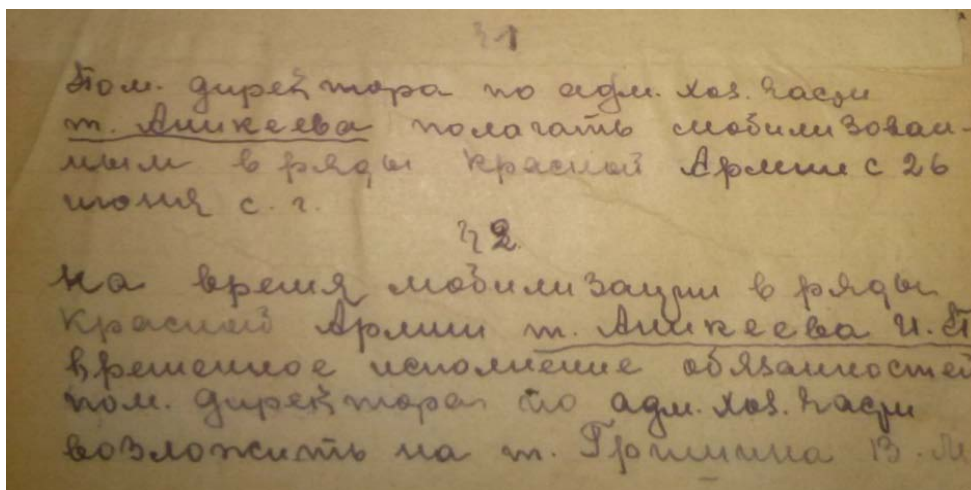 §1
Пом. директора по адм. хоз. части
т. Аникеева полагать мобилизован-
ным в ряды Красной Армии с 26
июня с. г.
§2.
На время мобилизации в ряды
Красной Армии т. Аникеева И. П
временное исполнение обязанностей
пом. директора по адм. хоз. части
возложить на т. Гришина В. М